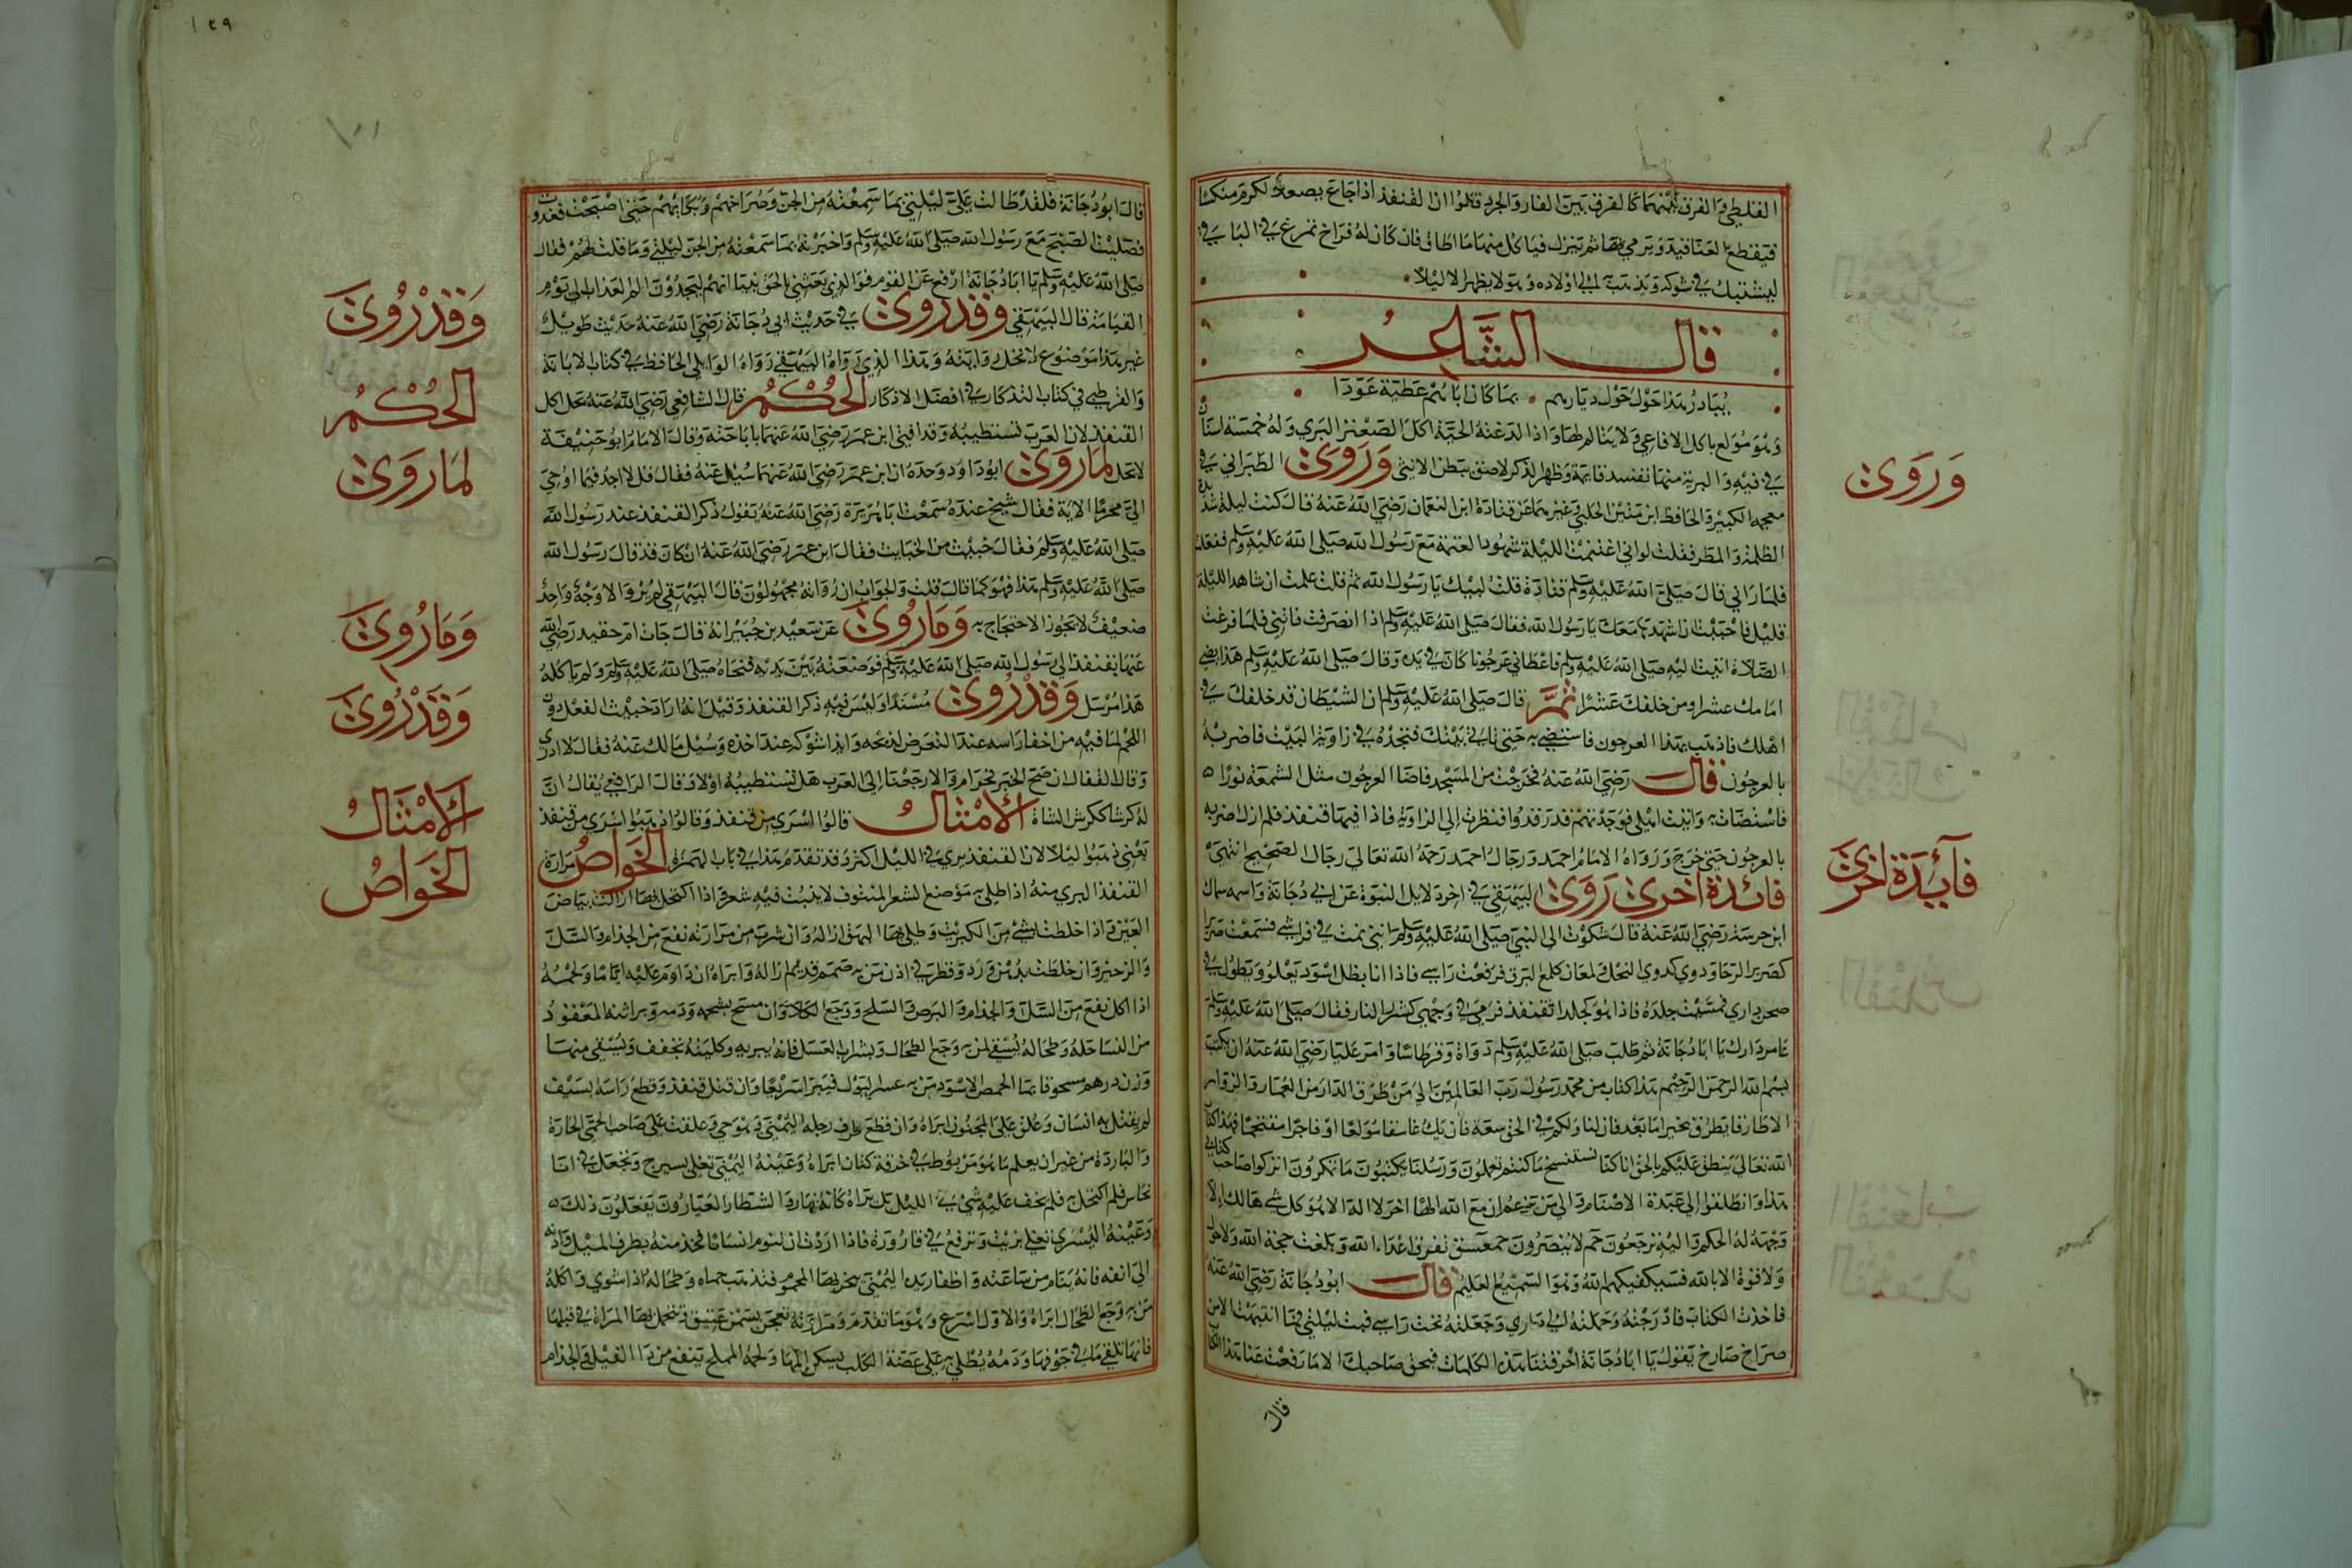 الغلظي والفرق بينهما كالفرق بين الفار والجرد قالوا ان القنفذ اذا جاع يصعد لكرم منكسا
فيقطع العناقيد ويرمي بها ثم ينزل فياكل منها ما اطاق فان كان له فراخ تمرغ في الباقي
ليشتبك في شوكه ويذهب به الى اولاده وهو لا يظهر الا ليلا
قال الشاعر
وهو مولع باكل الافاعي ولا يتالم لها واذا لدغته الحية اكل الصعتر البري وله خمسة اسنان
في فيه والبرية منها تفسد قائمة وظهر الذكر لاصق ببطن الانثى وروى الطبراني في
وروى
معجمه الكبير والحافظ ابن منير الحلبي وغيرهما عن قتادة ابن النعمان رضي الله عنه قال كنت ليلة شديدة
الظلمة والمطر فقلت لو اني اغتنمت الليلة شهود العتمة مع رسول الله صلى الله عليه وسلم ففعلت
فلما راني قال صلى الله عليه وسلم قتادة قلت لبيك يا رسول الله ثم قلت علمت ان شاهد الليلة
قليل فاحببت ان اشهدها معك يا رسول الله فقال صلى الله عليه وسلم اذا انصرفت فاتني فلما فرغت
الصلاة اتيت اليه صلى الله عليه وسلم فاعطاني عرجونا كان في يده وقال صلى الله عليه وسلم هذا يضي
امامك عشرا ومن خلفك عشرا ثم قال صلى الله عليه وسلم ان الشيطان قد خلفك في
اهلك فاذهب بهذا العرجون فاستضي به حتى تاتي بيتك فتجده في زاوية البيت فاضربه
بالعرجون قال رضي الله عنه فخرجت من المسجد فاضا العرجون مثل الشمعة نورا
فاستضات به واتيت اهلي فوجدتهم قد رقدوا فنظرت الى الزاوية فاذا فيها قنفذ فلم ازل اضربه
بالعرجون حتى خرج ورواه الامام احمد ورجال احمد رحمه الله تعالى رجال الصحيح انتهى
فائدة اخرى روى البيهقي في اخر دلايل النبوة عن ابي دجانة واسمه سماك
فآيدة اخرى
ابن خرسة رضي الله عنه قال شكوت الى النبي صلى الله عليه وسلم انني نمت في فراشي فسمعت صريرا
كصرير الرحا ودوي كدوي النحل ولمعان كلمع البرق فرفعت راسي فاذا انا بظل اسود يعلو ويطول في
صحن داري فمسيت جلده فاذا هو كجلد القنفذ فرمى في وجهي كشرر النار فقال صلى الله عليه وسلم
عامر دارك يا ابا دجانة ثم طلب صلى الله عليه وسلم دواة وقرطاسا وامر عليا رضي الله عنه ان يكتب
بسم الله الرحمن الرحيم هذا كتاب من محمد رسول رب العالمين الى من طرق الدار من العمار والزوار
الا طارقا يطرق بخير اما بعد فان لنا ولكم في الحق سعة فان يك عاشقا مولعا او فاجرا مقتحما فهذا كتاب
الله تعالى ينطق عليكم بالحق انا كنا نستنسخ ما كنتم تعملون ورسلنا يكتبون ما تمكرون اتركوا صاحب كتابي
هذا وانطلقوا الى عبدة الاصنام والى من يزعم ان مع الله الها اخر لا اله الا هو كل شي هالك الا
وجهه له الحكم واليه ترجعون حم لا ينصرون حمعسق تفرق اعداء الله وبلغت حجة الله ولا حول
ولا قوة الا بالله فسيكفيكهم الله وهو السميع العليم قال ابو دجانة رضي الله عنه
فاخذت الكتاب فادرجته وحملته الى داري وجعلته تحت راسي فبت ليلتي فما انتبهت الا من
صراخ صارخ يقول يا ابا دجانة احرقتنا بهذه الكلمات فبحق صاحبك الا ما رفعت عنا هذا الكتاب
قال
١٢٩
قال ابو دجانة فلقد طالت علي ليلتي بما سمعته من الجن وصراخهم وبكائهم حتى اصبحت فغدوت
فصليت الصبح مع رسول الله صلى الله عليه وسلم واخبرته بما سمعته من الجن ليلتي وما قلت لهم فقال
صلى الله عليه وسلم يا ابا دجانة ارفع عن القوم فوالذي بعثني بالحق نبيا انهم ليجدون الم العذاب الى يوم
القيامة قال البيهقي وقد روى في حديث ابي دجانة رضي الله عنه حديث طويل
وقد روى
غير هذا موضوع لا تحل روايته وهذا الذي رواه البيهقي رواه الوايلي الحافظ في كتاب الابانة
والقرطبي في كتاب التذكار في افضل الاذكار الحكم قال الشافعي رضي الله عنه يحل اكل
الحكم
القنفذ لان العرب تستطيبه وقد افتى ابن عمر رضي الله عنهما باباحته وقال الامام ابو حنيفة
لا تحل لما روى ابو داود وحده ان ابن عمر رضي الله عنهما سيل عنه فقال قل لا اجد فيما اوحي
لما روى
الي محرما الاية فقال شيخ عنده سمعت ابا هريرة رضي الله عنه يقول ذكر القنفذ عند رسول الله
صلى الله عليه وسلم فقال خبيث من الخبايث فقال ابن عمر رضي الله عنه ان كان قد قال رسول الله
صلى الله عليه وسلم هذا فهو كما قال قلت والجواب ان رواته مجهولون قال البيهقي لم يرو الا وجه واحد
ضعيف لا يجوز الاحتجاج به وما روى عن سعيد بن جبير انه قال جات ام حفيد رضي الله
وما روى
عنها بقنفذ الى رسول الله صلى الله عليه وسلم فوضعته بين يديه فنحاه صلى الله عليه وسلم ولم ياكله
هذا مرسل وقد روى مسندا وليس فيه ذكر القنفذ وقيل انه اراد خبيث الفعل دون
وقد روى
اللحم لما فيه من اخفا راسه عند التعرض لذبحه وابداشوكه عند اخذه وسيل مالك عنه فقال لا ادري
وقال القفال ان صح الخبر فحرام والا رجعنا الى العرب هل تستطيبه اولا وقال الرافعي يقال ان
له كرشا ككرش الشاة الامثال قالوا اسرى من قنفذ وقالوا ذهبوا اسرى من قنفذ
الامثال
يعني ذهبوا ليلا لان القنفذ يري في الليل اكثر وقد تقدم هذا في باب الهمزة الخواص مرارة
الخواص
القنفذ البري منه اذا طلي به موضع الشعر المنتوف لا ينبت فيه شعر واذا اكتحل بها ازالت بياض
العين واذا خلطت بشي من الكبريت وطلي بها البهق ازاله وان شرب من مرارته نفع من الجذام والسل
والزحير وان خلطت بدهن ورد وقطر في اذن من به صمم قديم ازاله وابراه ان داوم عليه اياما ولحمه
اذا اكل نفع من السل والجذام والبرص والسلح ووجع الكلا وان مسح بشحمه ودمه وبراثنه المعقود
من النسا حله وطحاله يسقى لمن به وجع الطحال وبشراب العسل فانه يبريه وكليته تجفف ويسقى منها
وزن درهم مسحوقا بما الحمص الاسود من به عسر البول فيبرا سريعا وان قتل قنفذ وقطع راسه بسيف
لم يقتل به انسان وعلق على المجنون ابراه وان قطع طرف رجله اليمنى وهو حي وعلقت على صاحب الحمى الحارة
والباردة من غير ان يعلم ما هو مربوطة في خرقة كتان ابراه وعينه اليمنى تغلى بسيرج وتجعل في انا
نحاس فلم اكتحل به فلم يخف عليه شي في الليل بل يراه كانه نهار والشطار العيارون يفعلون ذلك
وعينه اليسرى تغلى بزيت وترفع في قارورة فاذا اردت ان تنوم انسانا فخذ منه بطرف الميل وادنه
الى انفه فانه ينام من ساعته واظفار يده اليمنى يبخر بها المحموم فتذهب حماه وطحاله اذا شوي واكله
من به وجع الطحال ابراه والاول اسرع وهو ما تقدم ومرارته تعجن بسمن عتيق وتتحمل بها المراة في قبلها
فانها تلقي ما في جوفها ودمه يطلى به على عضة الكلب يسكن المها ولحمه المملح ينفع من داء الفيل والجذام